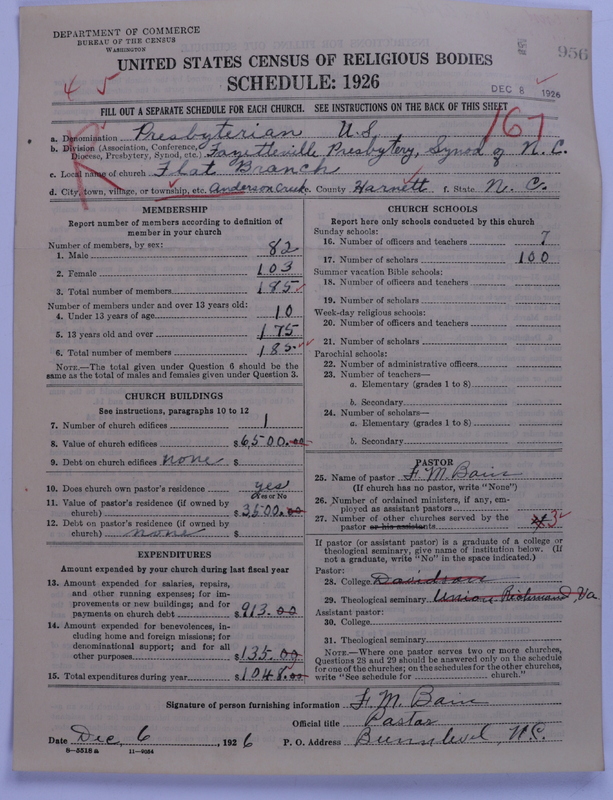 DEPARTMENT OF COMMERCE
BUREAU OF THE CENSUS
WASHINGTON
956
UNITED STATES CENSUS OF RELIGIOUS BODIES
SCHEDULE: 1926
4 5
DEC 8 1926
FILL OUT A SEPARATE SCHEDULE FOR EACH CHURCH. SEE INSTRUCTIONS ON THE BACK OF THIS SHEET
167
a. Denomination Presbyterian U.S.
b. Division (Association, Conference, Diocese, Presbytery, Synod, etc.) Fayetteville Presbytery, Synod of N.C.
c. Local name of church Flat Branch
d. City, town, village, or township, etc. Anderson Creek e. County Harnett f. State N. C.
MEMBERSHIP
Report number of members according to definition of
member in your church
Number of members, by sex:
1. Male 82
2. Female 103
3. Total number of members 185
Number of members under and over 13 years old:
4. Under 13 years of age 10
5. 13 years old and over 175
6. Total number of members 185
NOTE.—The total given under Question 6 should be the
same as the total of males and females given under Question 3.
CHURCH BUILDINGS
See instructions, paragraphs 10 to 12
7. Number of church edifices 1
8. Value of church edifices $6,500.00
9. Debt on church edifices none $
10. Does church own pastor's residence yes
Yes or No
11. Value of pastor's residence (if owned by
church) $3,500.00
12. Debt on pastor's residence (if owned by
church) none $
EXPENDITURES
Amount expended by your church during last fiscal year
13. Amount expended for salaries, repairs,
and other running expenses; for im-
provements or new buildings; and for
payments on church debt $913.00
14. Amount expended for benevolences, in-
cluding home and foreign missions; for
denominational support; and for all
other purposes $135.00
15. Total expenditures during year $1048.00
CHURCH SCHOOLS
Report here only schools conducted by this church
Sunday schools:
16. Number of officers and teachers 7
17. Number of scholars 100
Summer vacation Bible schools:
18. Number of officers and teachers
19. Number of scholars
Week-day religious schools:
20. Number of officers and teachers
21. Number of scholars
Parochial schools:
22. Number of administrative officers
23. Number of teachers—
a. Elementary (grades 1 to 8)
b. Secondary
24. Number of scholars—
a. Elementary (grades 1 to 8)
b. Secondary
PASTOR
25. Name of pastor F. M. Bain
(If church has no pastor, write "None")
26. Number of ordained ministers, if any, em-
ployed as assistant pastors
27. Number of other churches served by the
pastor or his assistants 3
If pastor (or assistant pastor) is a graduate of a college or
theological seminary, give name of institution below. (If
not a graduate, write "No" in the space indicated.)
Pastor:
28. College Davidson
29. Theological seminary Union Richmond, Va.
Assistant pastor:
30. College
31. Theological seminary
NOTE.—Where one pastor serves two or more churches,
Questions 28 and 29 should be answered only on the schedule
for one of the churches; on the schedules for the other churches,
write "See schedule for church."
Signature of person furnishing information F. M. Bain
Official title Pastor
Date Dec. 6, 1926 P. O. Address Bunnlevel, N.C.
8—5518 a 11—9084